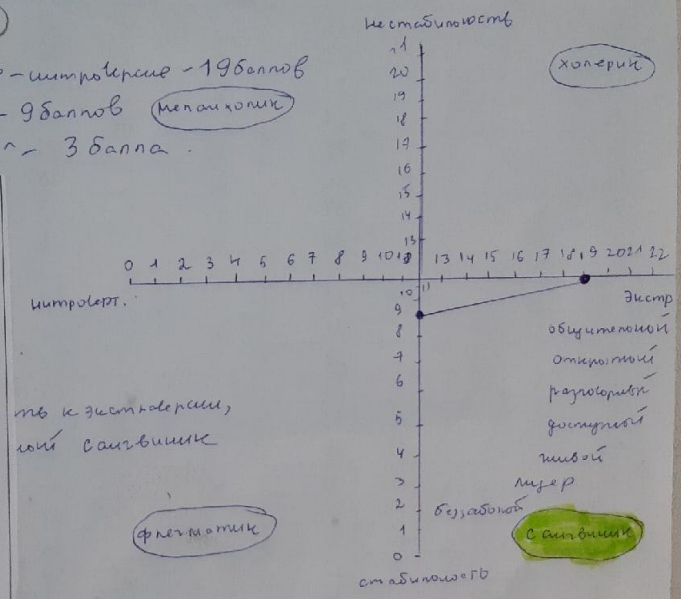 нестабильность
– интроверсие – 19 баллов
холерик
– 9 баллов
меланхолик
– 3 балла.
21
20
19
18
17
16
15
14
13
0 1 2 3 4 5 6 7 8 9 10 13 14 15 16 17 18 19 20 21 22
11
10
интроверт.
экстр
9
8
7
6
5
4
3
2
1
0
общительной
открытый
разговорчив
доступный
живой
лидер
беззаботной
ть к экстраверсии,
ный сангвиник
флегматик
сангвиник
стабильность